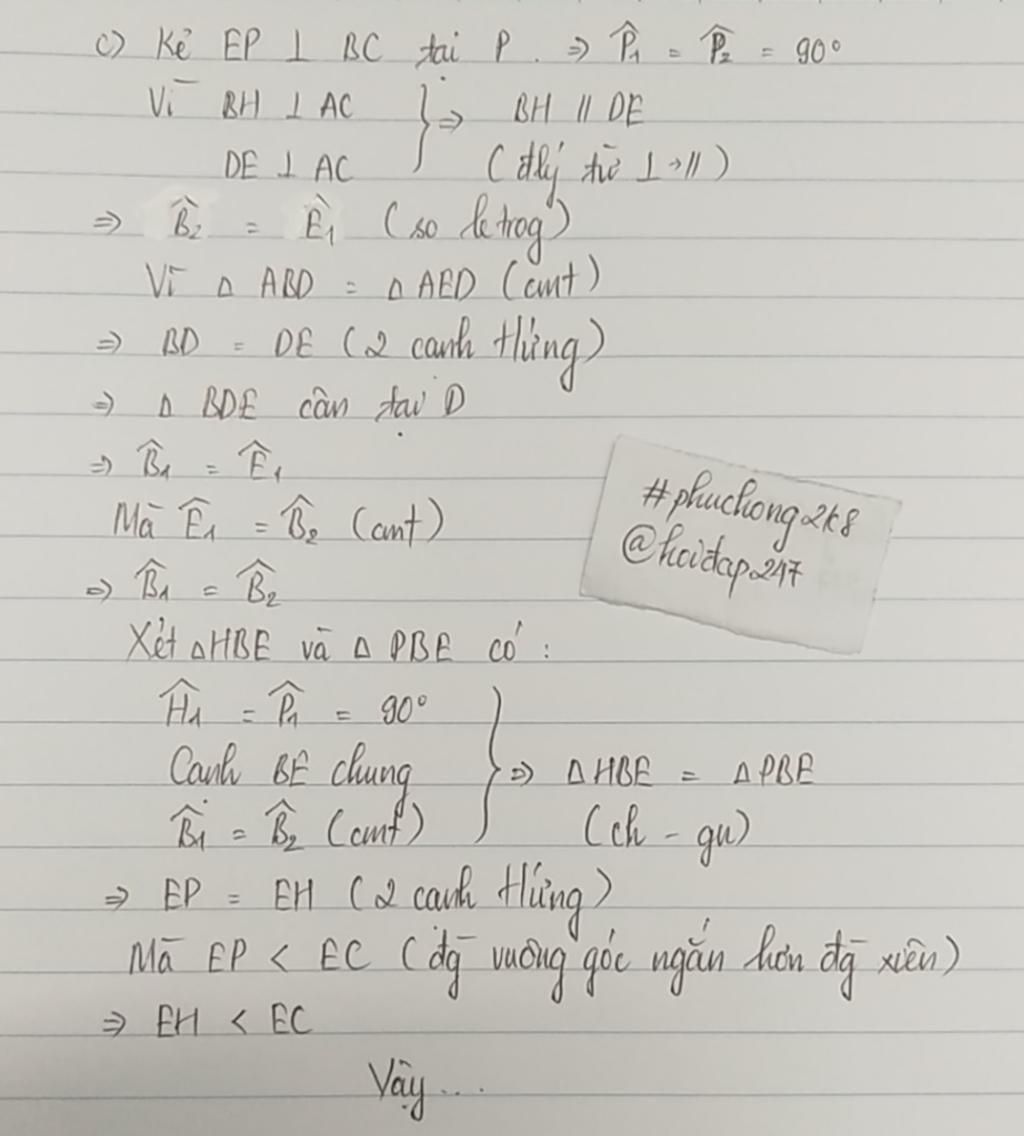 c) Kẻ EP ⊥ BC tại P. ⇒ P̂₁ = P̂₂ = 90°
Vì BH ⊥ AC } ⇒ BH // DE
DE ⊥ AC (đlý từ ⊥→//)
⇒ B̂₂ = Ê₁ (so le trog)
Vì Δ ABD = Δ AED (cmt)
⇒ BD = DE (2 cạnh tứng)
⇒ Δ BDE cân tại D
⇒ B̂₁ = Ê₁
Mà Ê₁ = B̂₂ (cmt)
⇒ B̂₁ = B̂₂
#phuchong2k8
@hoidap247
Xét ΔHBE và Δ PBE có :
Ĥ₁ = P̂₁ = 90°
Cạnh BE chung } ⇒ ΔHBE = ΔPBE
B̂₁ = B̂₂ (cmt) (ch - gn)
⇒ EP = EH (2 cạnh tứng)
Mà EP < EC (đg vuông góc ngắn hơn đg xiên)
⇒ EH < EC
Vậy....